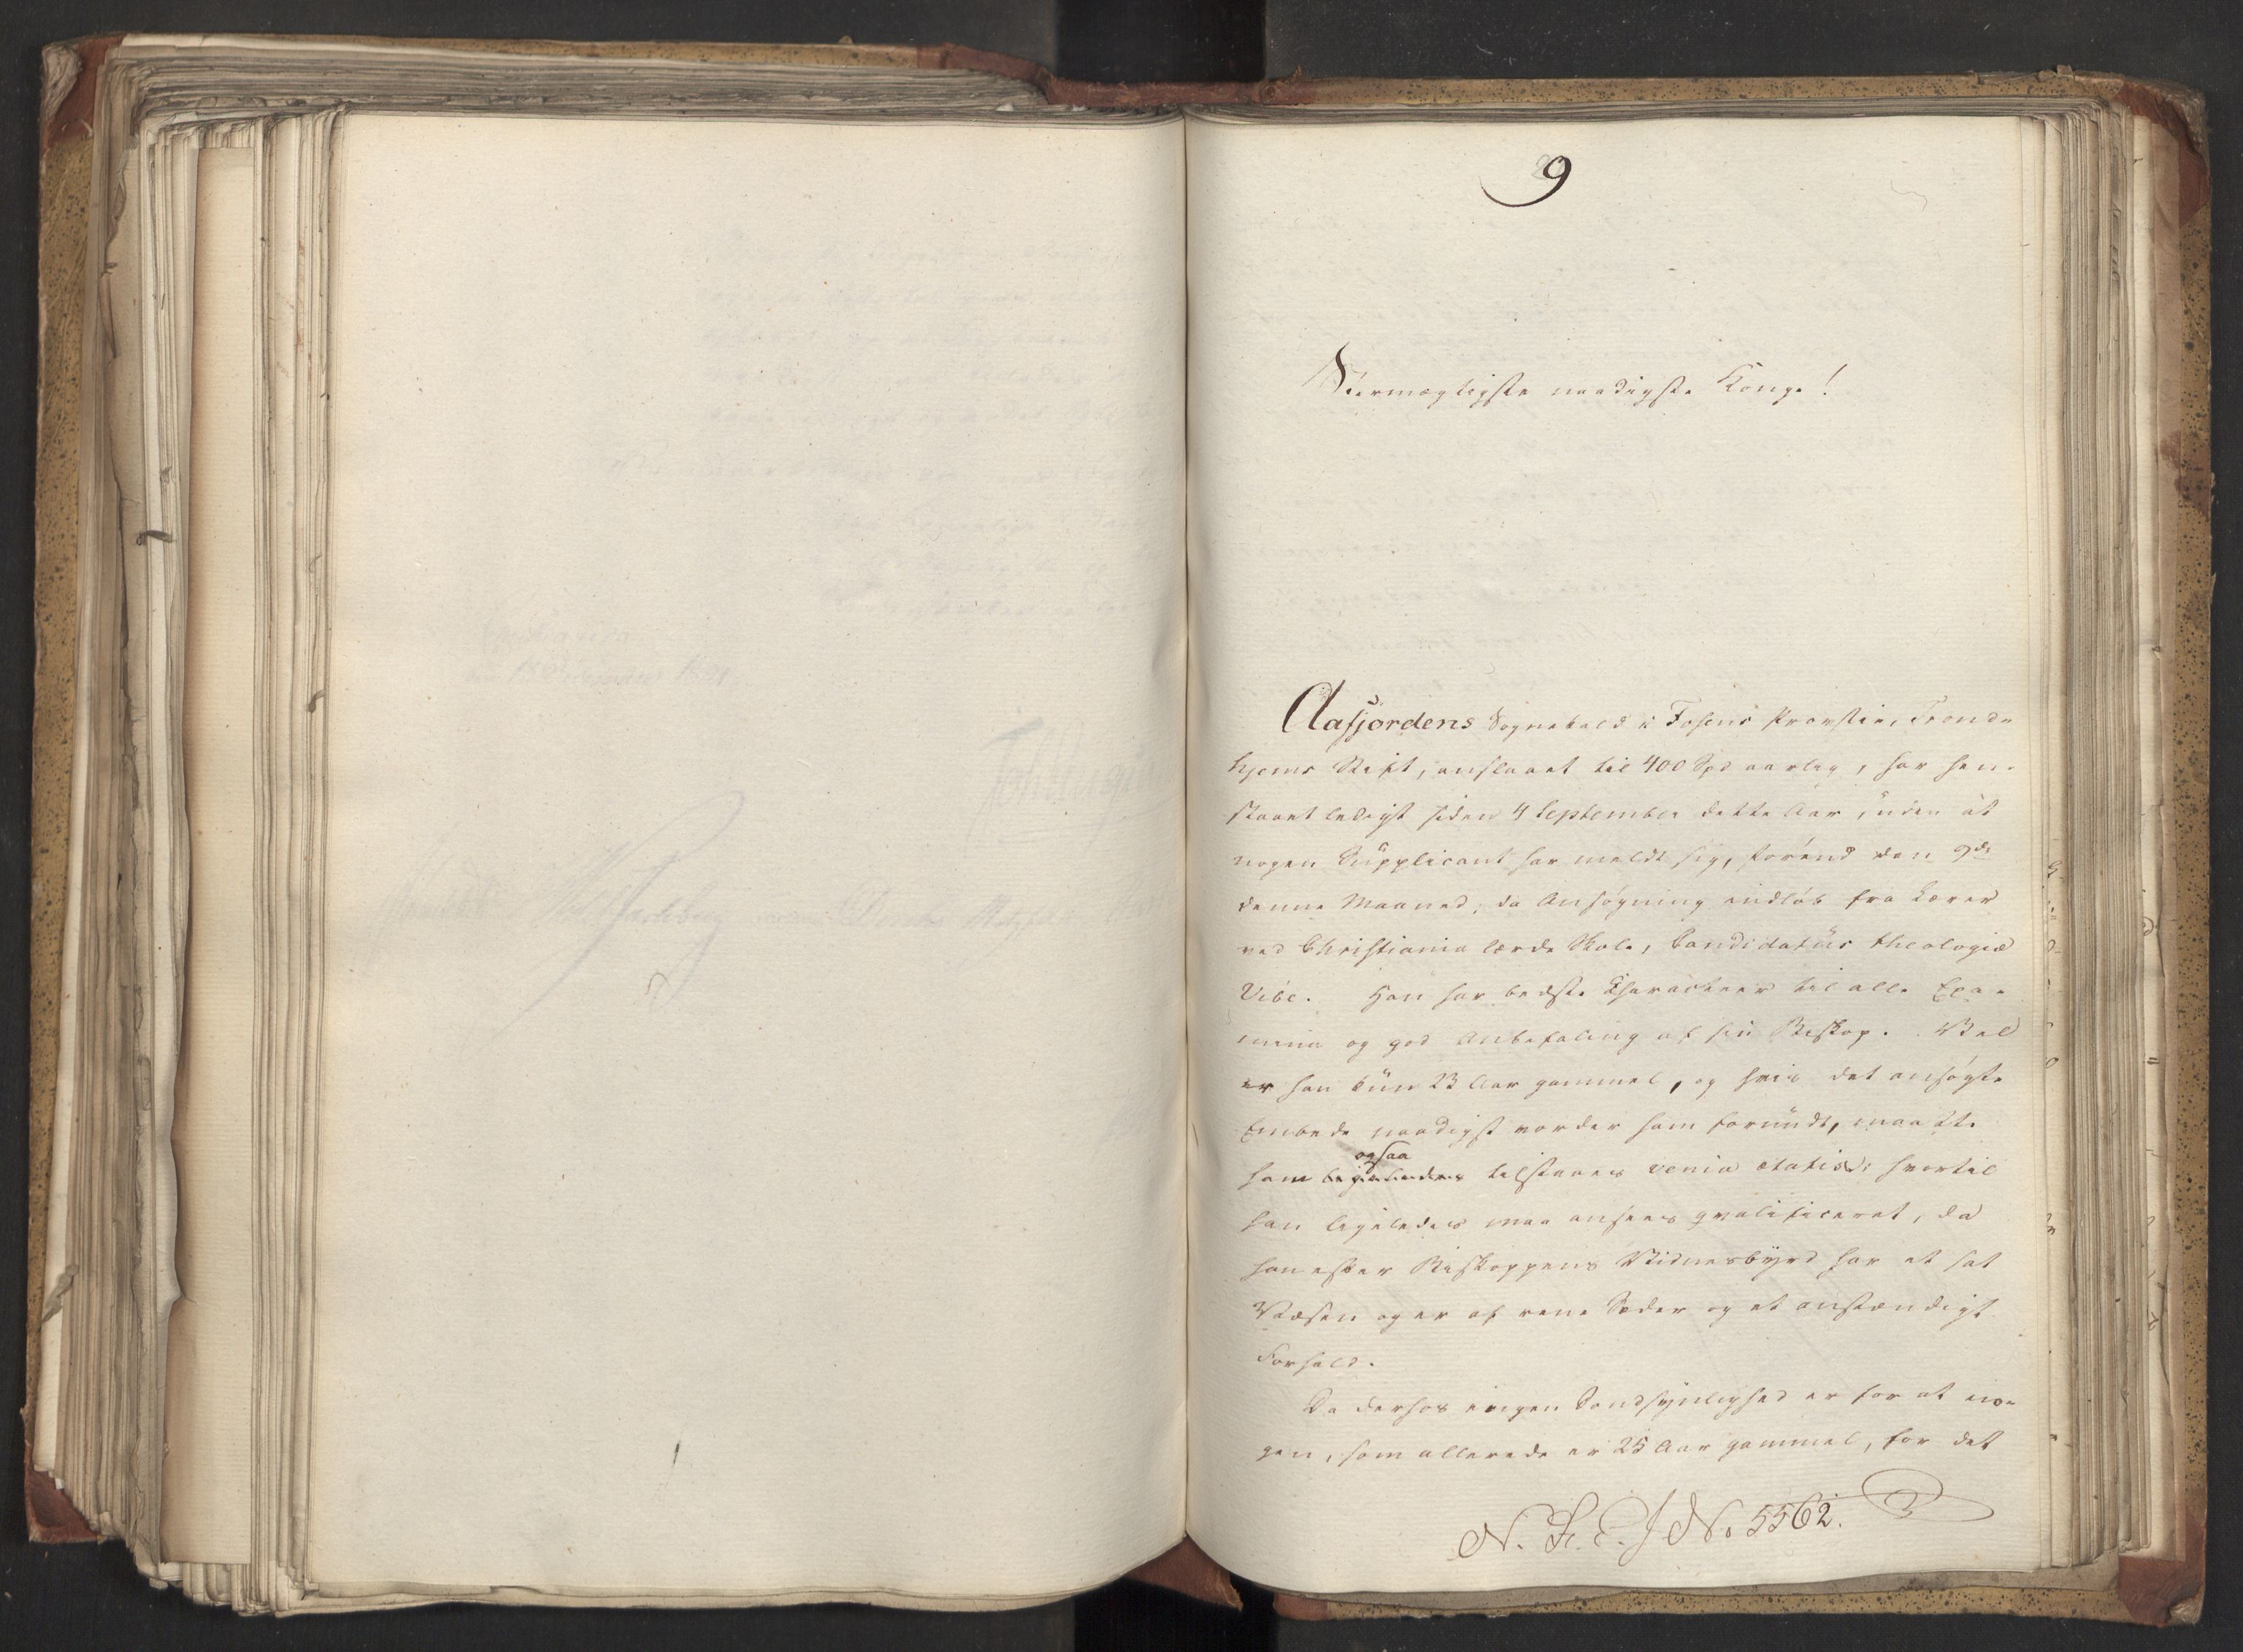 9
Stormægtigste naadigste Konge!
Aafjordens Sognekald i Fosens Provstie, Trond-
hjems Stift, anslaaet til 400 Spd aarlig, har hen-
staaet ledigt siden 4 September dette Aar, uden at
nogen Supplicant har meldt sig, førend den 9de
denne Maaned, da Ansøgning indløb fra Lærer
ved Christiania lærde Skole, Candidatus theologiæ
Vibe. Han har bedste Charakteer til alle Exa-
mina og god Anbefaling af sin Biskop. Vel
er han kun 23 Aar gammel, og hvis det ansøgte
Embede naadigst vorder ham forundt, maatte
ogsaa
ham ligeledes tilstaaes venia ætatis, hvortil
han ligeledes maa ansees qvalificeret, da
han efter Biskoppens Vidnesbyrd har et sat
Væsen og er af rene Sæder og et anstændigt
Forhold.
Da derhos ingen Sandsynlighed er for at no-
gen, som allerede er 25 Aar gammel, for det
N. K. E. J No. 5562.